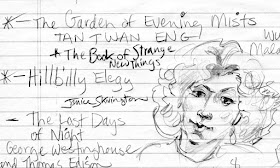 *— The Garden of Evening Mists
TAN TWAN ENG
* The Book of Strange
New Things
*— Hillbilly Elegy
— The Last Days
of Night
George Westinghouse
and Thomas Edison